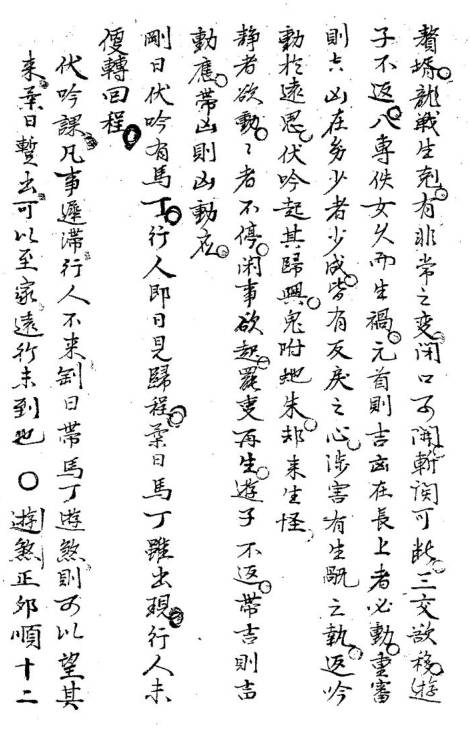 贅壻龍戰生剋有非常之变闭口可開斬関可断三交欲移遊
子不返八專佚女久而生禍元首則吉凶在長上者必動重審
則六凶在多少者少成皆有反戾之心涉害有生覬之執返吟
動扵遠思伏吟起其歸興鬼附地朱邦来生怪
静者欲動〻者不停闲事欲起罷叓再生遊子不返帶吉則吉
動應帶凶則凶動应
剛日伏吟有馬丁行人即日見歸程柔日馬丁雖出現行人未
便轉回程
伏吟課凡事遲滞行人不来剛日帶馬丁遊煞則可以望其
来柔日暫出可以至家遠行未到也〇遊煞正夘順十二